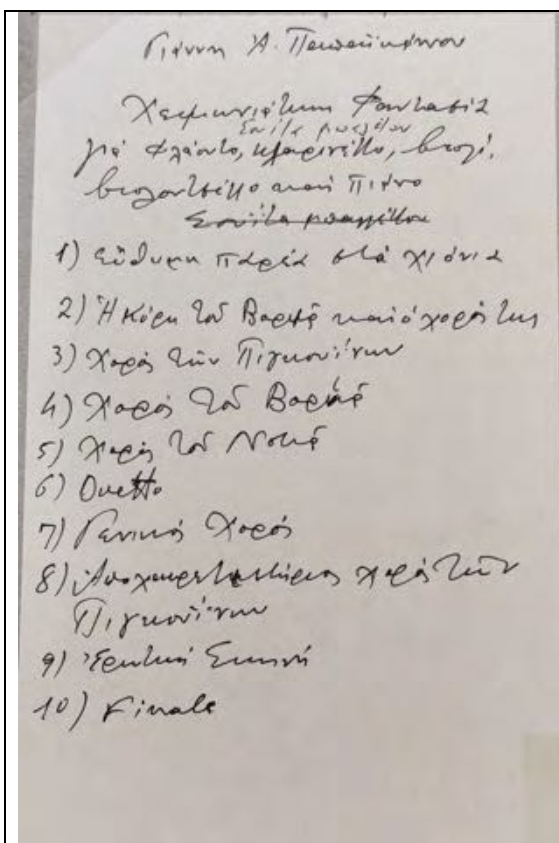 Γιάννη Ἀ. Παπαϊωάννου
Χειμωνιάτικη Φαντασία
Σουίτα μπαλέτου
γιά φλάουτο, κλαρινέττο, βιολί,
βιολοντσέλλο καί πιάνο
Σουίτα μπαλλέτου
1) Εὔθυμη παρέα στά χιόνια
2) Ἡ Κόρη τοῦ Βοριᾶ καί ὁ χορός της
3) Χορός τῶν Πιγκουίνων
4) Χορός τοῦ Βοριᾶ
5) Χορός τοῦ Νοτιᾶ
6) Duetto
7) Γενικός Χορός
8) Ἀποχαιρετιστήριος χορός τῶν
Πιγκουίνων
9) Ἐρωτική Σκηνή
10) Finale